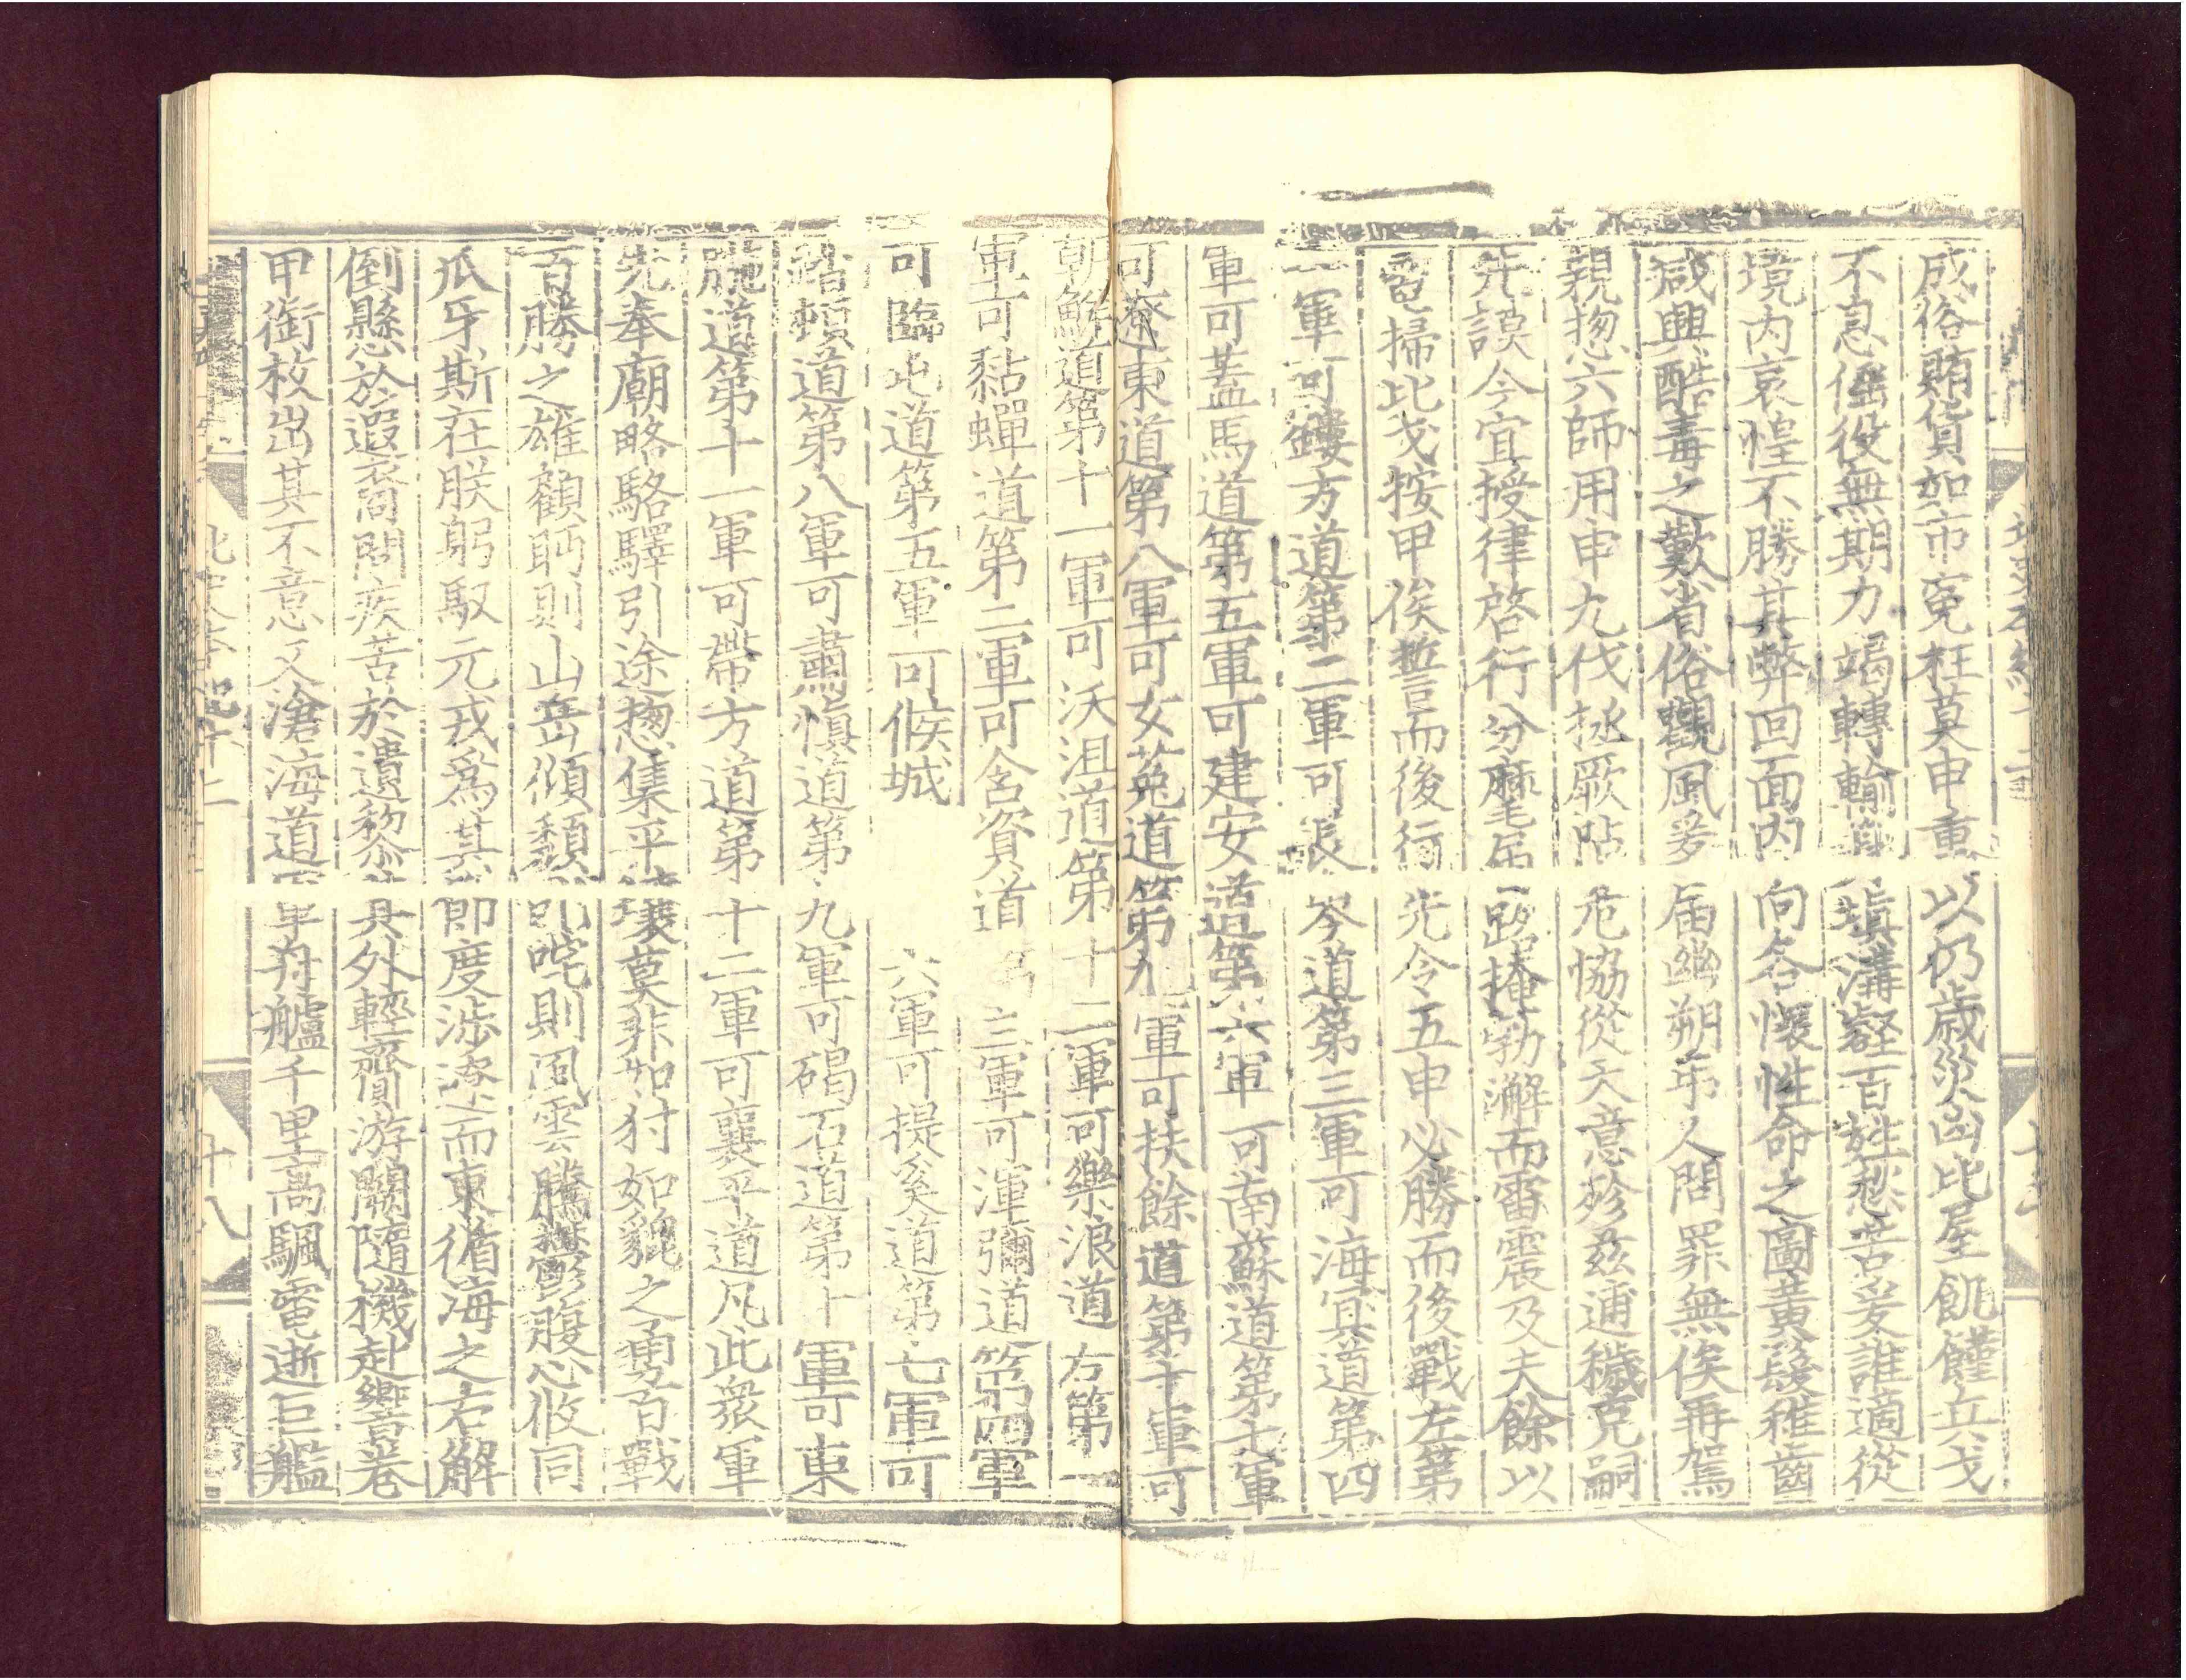 成俗賄貨如市冤枉莫申重以仍歲災凶比屋飢饉兵戈
不息傜役無期力竭轉輸身塡溝壑百姓愁苦爰誰適從
境內哀惶不勝其弊回面內向各懷性命之圖黃髮稚齒
咸興酷毒之歎省俗觀風爰屆幽朔弔人問罪無俟再駕
親揔六師用申九伐拯厥阽危協從天意殄玆逋穢克嗣
先謨今宜授律啓行分麾屆路掩勃澥而雷震及夫餘以
電掃比戈按甲俟誓而後行先令五申必勝而後戰左第
一軍可鏤方道第二軍可長岑道第三軍可海冥道第四
軍可蓋馬道第五軍可建安道第六軍可南蘇道第七軍
可遼東道第八軍可女菟道第九軍可扶餘道第十軍可
朝鮮道第十一軍可沃沮道第十二軍可樂浪道右第一
軍可黏蟬道第二軍可含資道 三軍可渾彌道第四軍
可臨屯道第五軍可候城 六軍可提奚道第七軍可
踏頓道第八軍可肅愼道第九軍可碣石道第十軍可東
暆道第十一軍可帶方道第十二軍可襄平道凡此衆軍
先奉廟略駱驛引途揔集平壤莫非如豺如貔之勇百戰
百勝之雄顧眄則山岳傾頹叱咤則風雲騰鬱腹心攸同
爪牙斯在朕躬馭元戎爲其節度涉遼而東循海之右解
倒懸於遐裔問疾苦於遺黎其外輕齎游闕隨機赴響卷
甲銜枚出其不意又滄海道軍舟艫千里高颿電逝巨艦
北史 本紀十二
十八